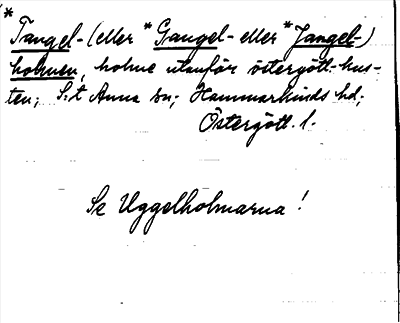 *Tangel- (eller *Gangel- eller *Jangel-)
holmen, holme utanför östergötl.-kus-
ten; S:t Anna sn; Hammarkinds hd;
Östergötl. l.
Se Uggelholmarna!